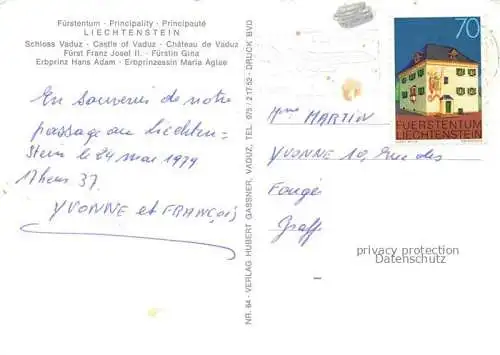 Fürstentum · Principality · Principauté
LIECHTENSTEIN
Schloss Vaduz - Castle of Vaduz - Château de Vaduz
Fürst Franz Josef II. - Fürstin Gina
Erbprinz Hans Adam - Erbprinzessin Maria Aglae
En souvenir de notre
passage au Liechten=
Stein le 24 mai 1979
37.
YVONNE et FRANÇOIS
NR. 64 - VERLAG HUBERT GASSNER, VADUZ, TEL. 075 / 2 17 52 - DRUCK BVD
70
FUERSTENTUM
LIECHTENSTEIN
Mme MARTIN
YVONNE 10, rue des
privacy protection
Datenschutz